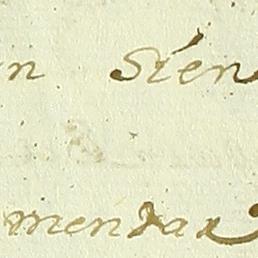 n sien
mendar